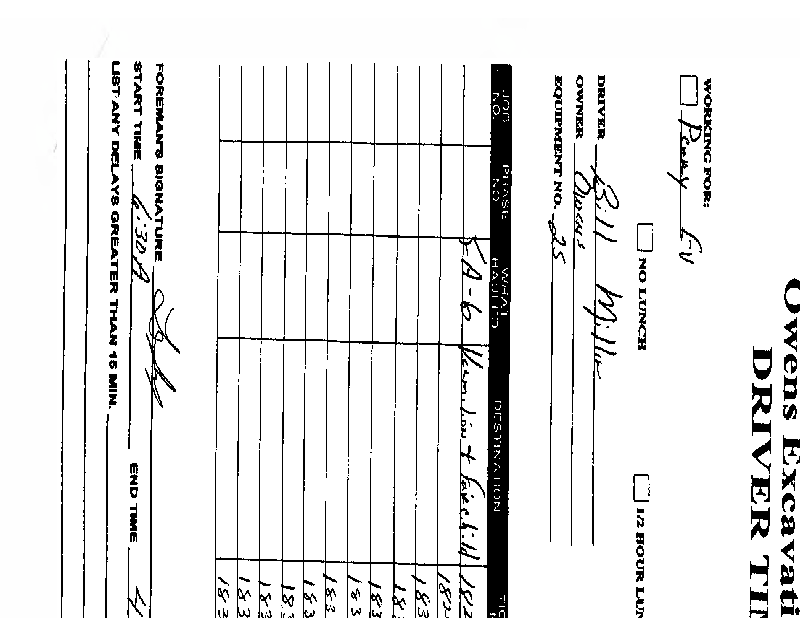 Owens Excavati
DRIVER TI
WORKING FOR:
Penny
NO LUNCH
1/2 HOUR LUN
DRIVER Bill Miller
OWNER Owens
EQUIPMENT NO. 25
JOB NO. PHASE NO. WHAT HAULED DESTINATION TIC
CA-6 Vermilion + Fairchild 182
182
183
183
183
183
183
183
183
183
183
183
FOREMAN'S SIGNATURE
START TIME 6:30A END TIME 4:
LIST ANY DELAYS GREATER THAN 15 MIN.